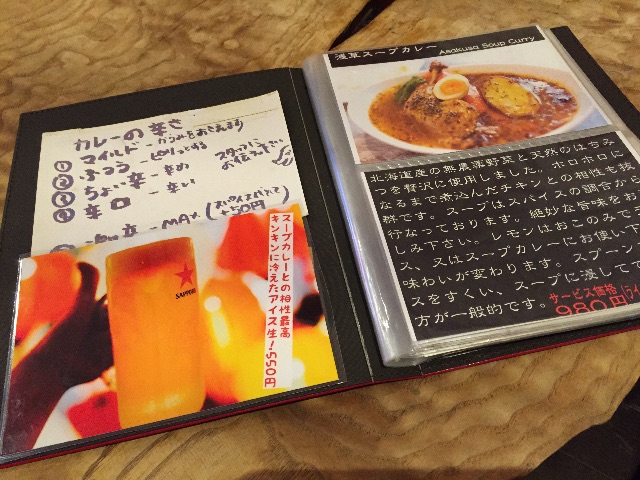 カレーの辛さ
① マイルド - からみをおさえます
② ふつう - ピリッとする
③ ちょい辛 - 辛め
④ 辛口 - 辛い
スタッフに
お伝え下さい
辛 - MAX
+50円
スープカレーとの相性最高
キンキンに冷えたアイス生!550円
SAPPORO
浅草スープカレー Asakusa Soup Curry
北海道産の無農薬野菜と天然のはちみ
つを贅沢に使用しました。ホロホロに
なるまで煮込んだチキンとの相性も抜
群です。スープはスパイスの調合から
行なっております。絶妙な旨味をお
しみ下さい。レモンはおこのみで
ス、又はスープカレーにお使い下
味わいが変わります。スプーン
スをすくい、スープに浸して
方が一般的です。
サービス価格
980円